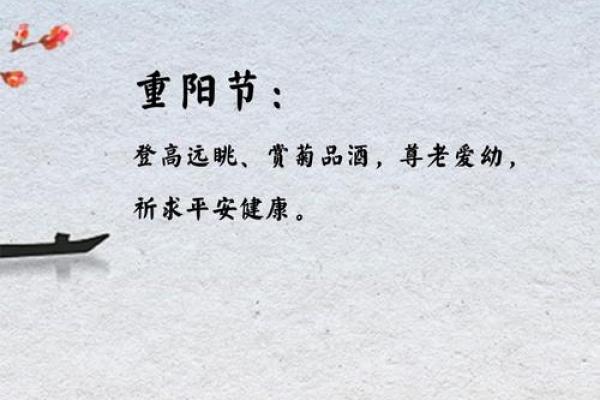 重阳节：
登高远眺、赏菊品酒，尊老爱幼，
祈求平安健康。